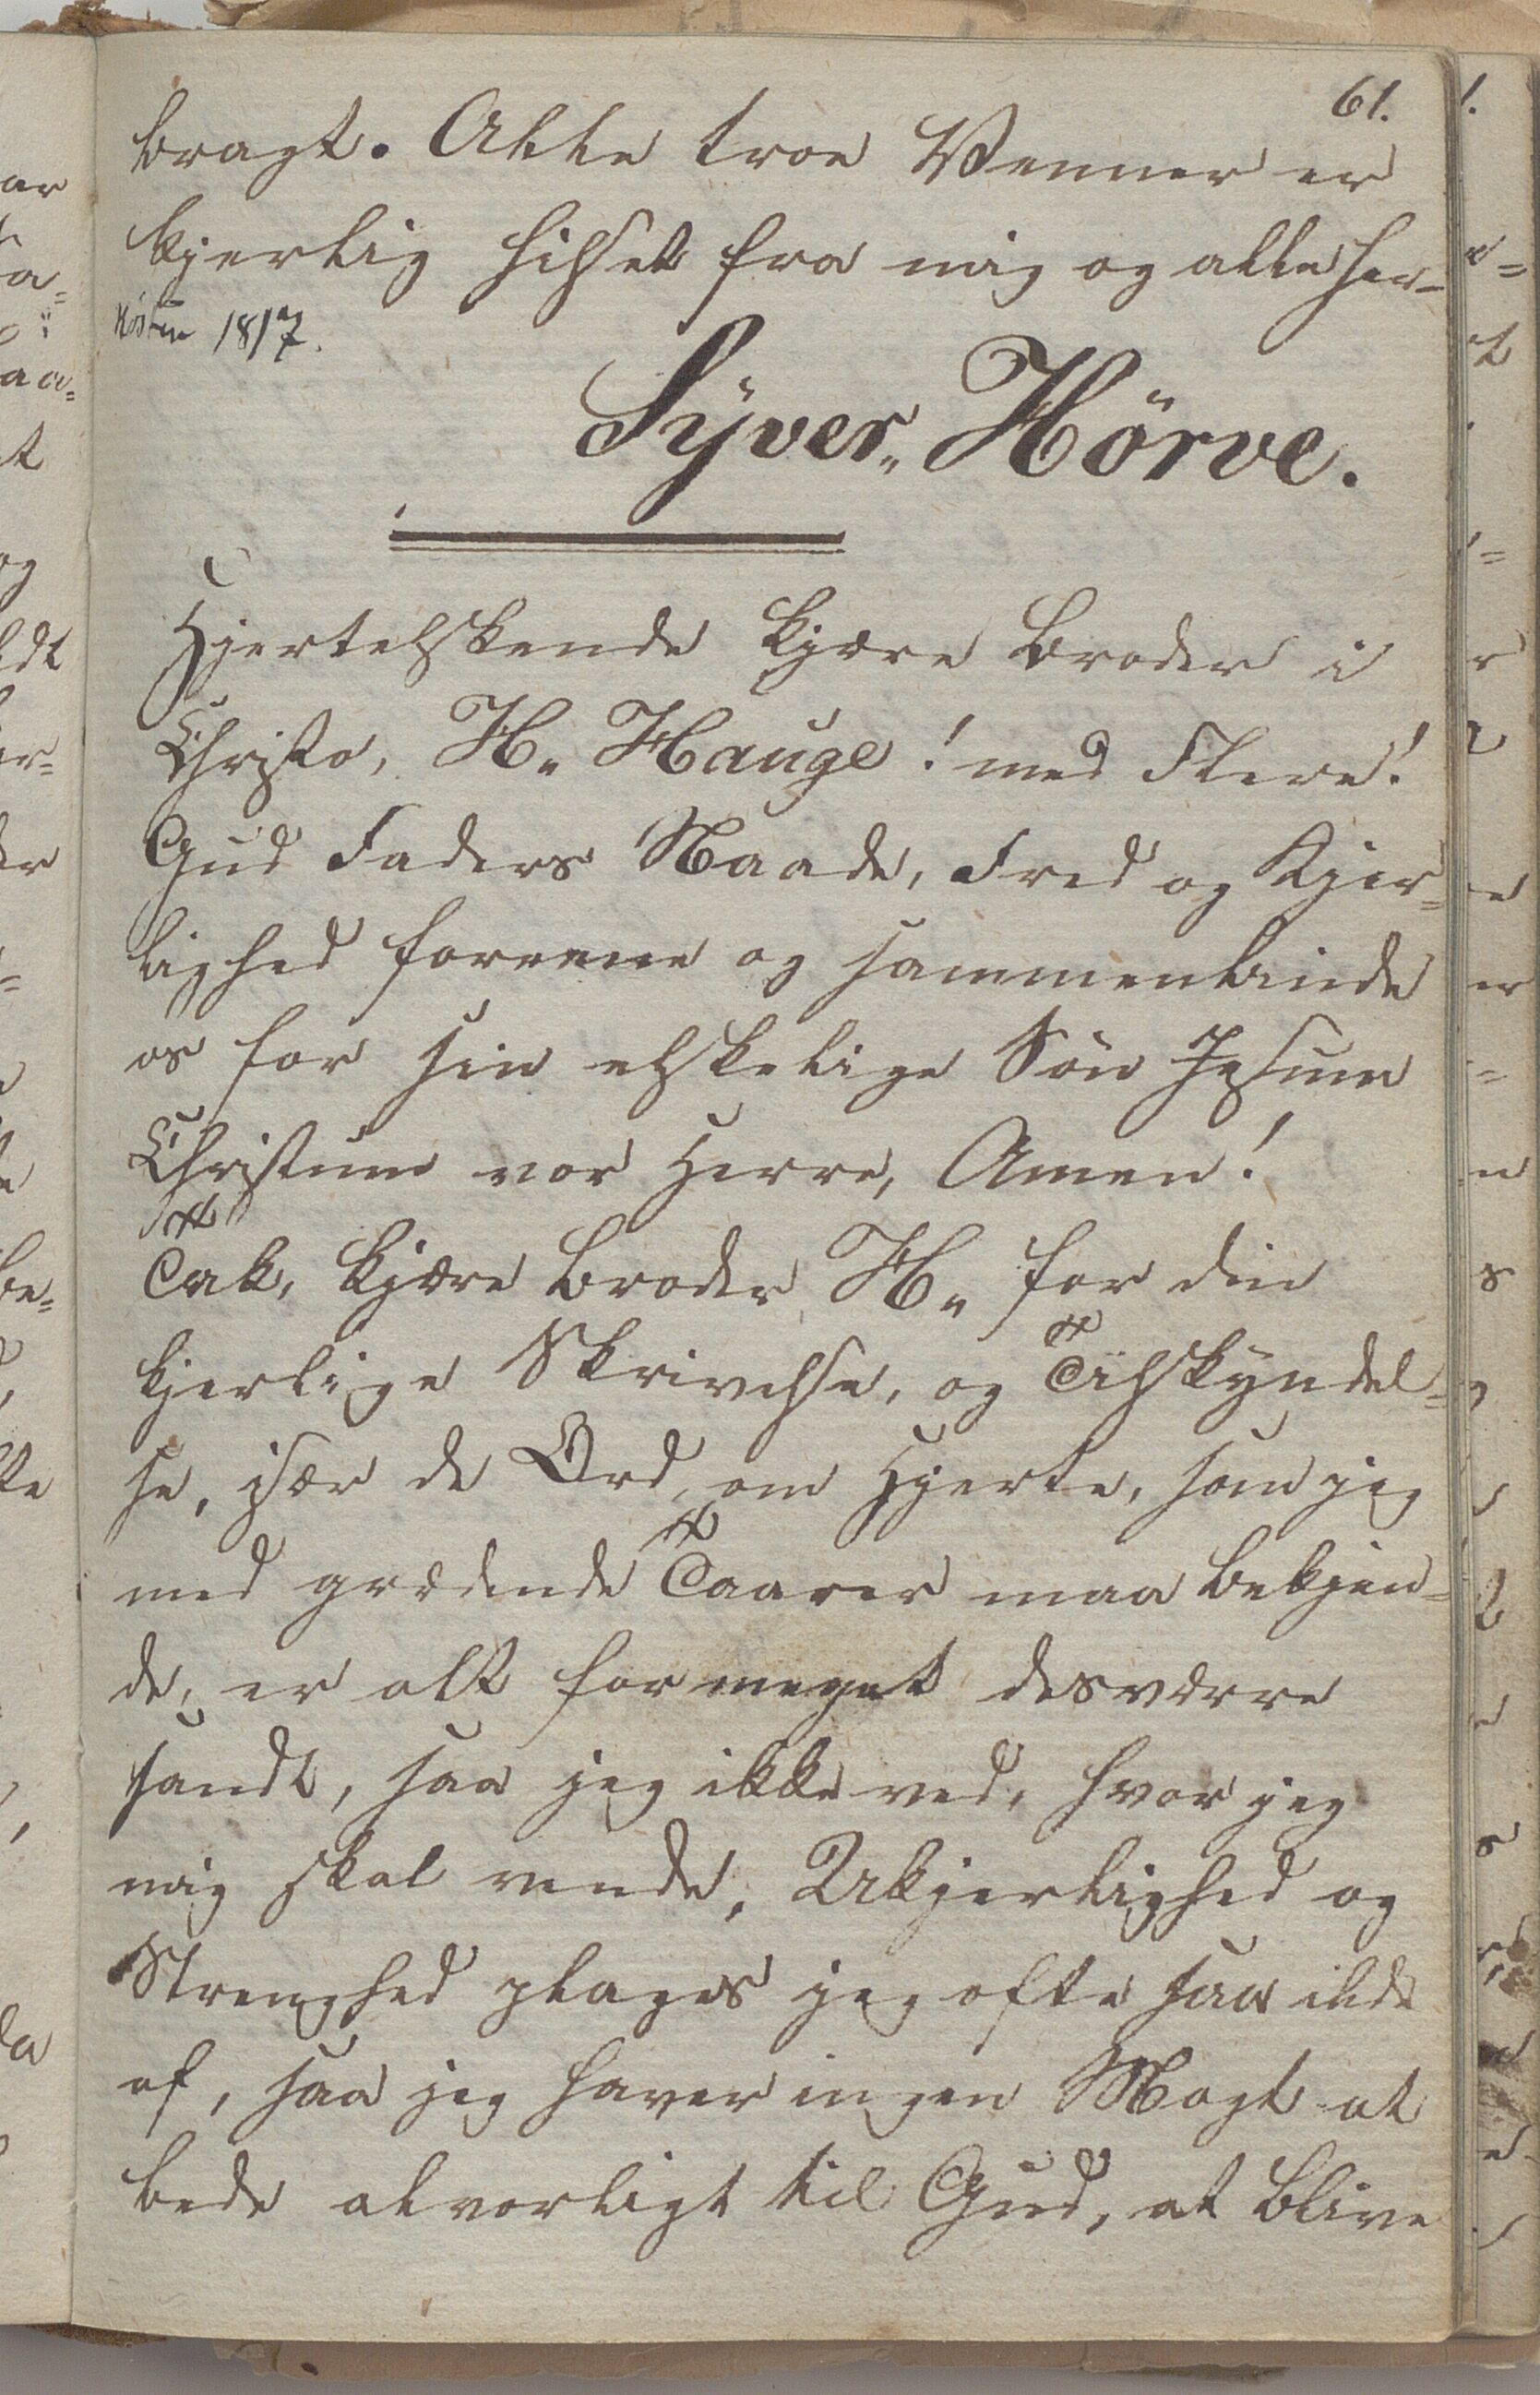 61.
bragt. Alle troe Venner er
kjerlig hilset fra mig og alle her-
Høsten 1817.
Syver„ Hörve.
Hjertelskende kjære Broder i
Christo, H„ Hauge! med Flere!
Gud Faders Naade, Fred og Kjer=
lighed foreene og sammenbinde
os for sin elskelige Søn Jesum
Christum vor Herre, Amen!
Tak, kjære Broder H„ for din
kjerlige Skrivelse, og Tilskyndel=
se, især de Ord, om Hjerte, som jeg
med grædende Taarer maa bekjen=
de, er alt formeget desværre
sandt, saa jeg ikke ved, hvor jeg
mig skal vende, Ukjerlighed og
Strenghed plages jeg ofte saa ilde
af, saa jeg haver ingen Magt at
bede alvorligt til Gud, at blive